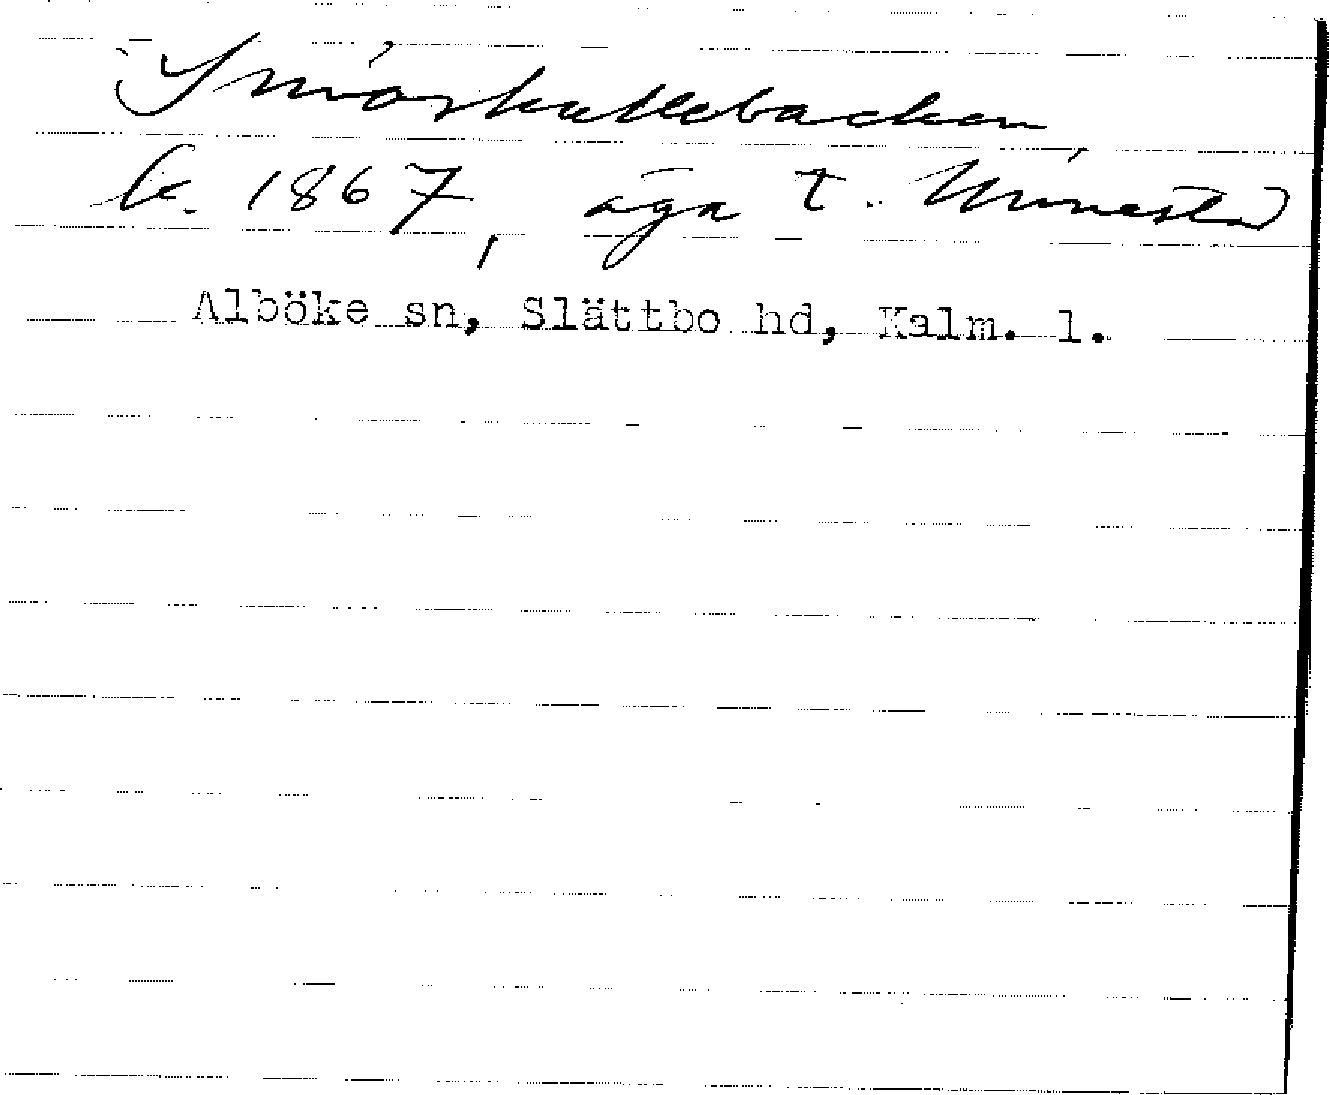 Smörkullebacken
k. 1867, äga t.
Alböke sn, Slättbo hd, Kalm. l.